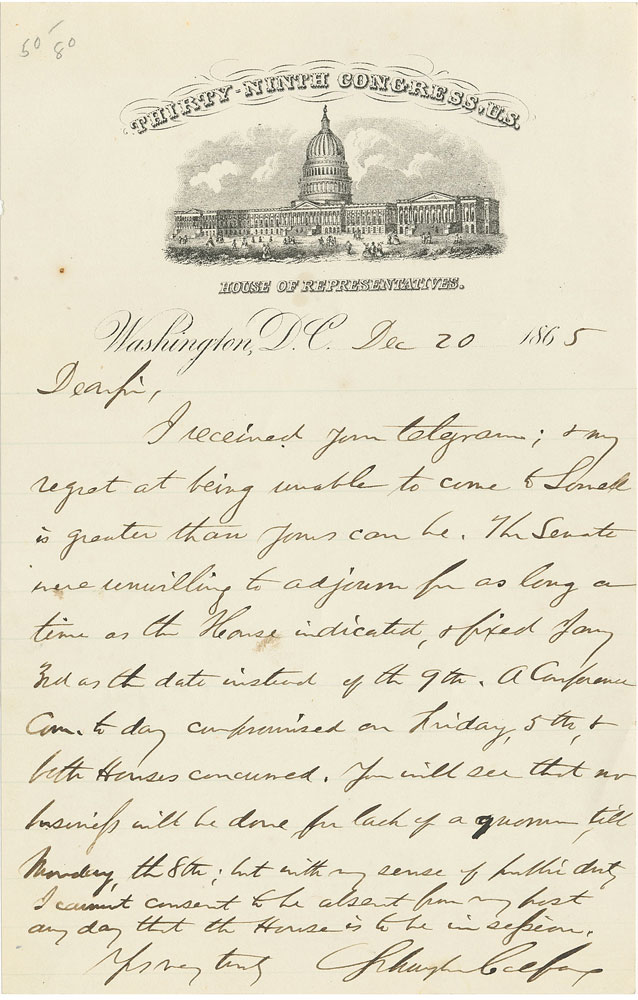 50 - 80
THIRTY-NINTH CONGRESS, U.S.
HOUSE OF REPRESENTATIVES.
Washington, D.C. Dec 20 1865
Dear Sir,
I received your telegram; & my
regret at being unable to come to Lowell
is greater than yours can be. The Senate
were unwilling to adjourn for as long a
time as the House indicated, & fixed Jany
3rd as the date instead of the 9th. A Conference
Com. to day compromised on Friday, 5th, &
both Houses concurred. You will see that no
business will be done for lack of a quorum till
Monday, the 8th; but with my sense of public duty
I cannot consent to be absent from my post
any day that the House is to be in session.
Yrs very truly Schuyler Colfax